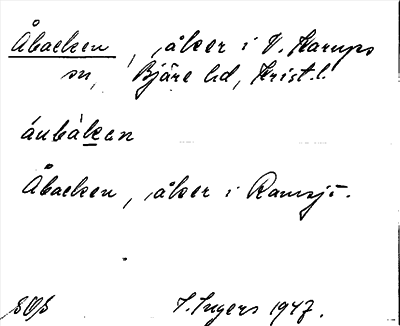 Åbacken, åker i V. Karups
sn, Bjäre hd, Krist. l.
áubàkan
Åbacken, åker i Ramsjö.
I. Ingers 1947.